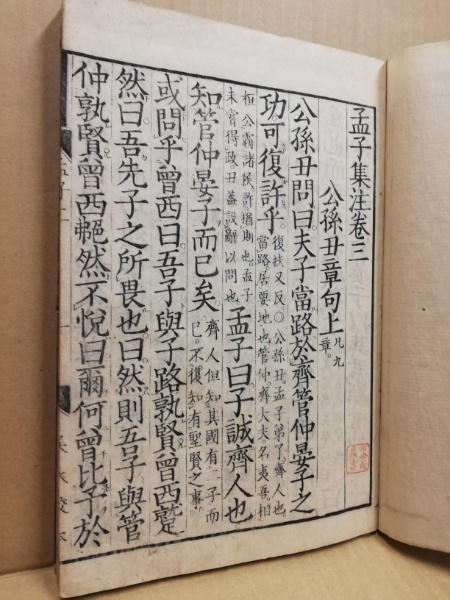 孟子集注卷三
公孫丑章句上 凡九章。
公孫丑問曰夫子當路於齊管仲晏子之
功可復許乎 復扶又反○公孫丑。孟子弟子。齊人也。當路。居要地也。管仲齊大夫。名夷吾。相
桓公霸諸侯。許猶期也。孟子未嘗得政。丑蓋設辭以問也 孟子曰子誠齊人也
知管仲晏子而已矣 齊人但知其國有二子而已。不復知有聖賢之事。
或問乎曾西曰吾子與子路孰賢曾西蹵
然曰吾先子之所畏也曰然則吾子與管
仲孰賢曾西艴然不悅曰爾何曾比予於